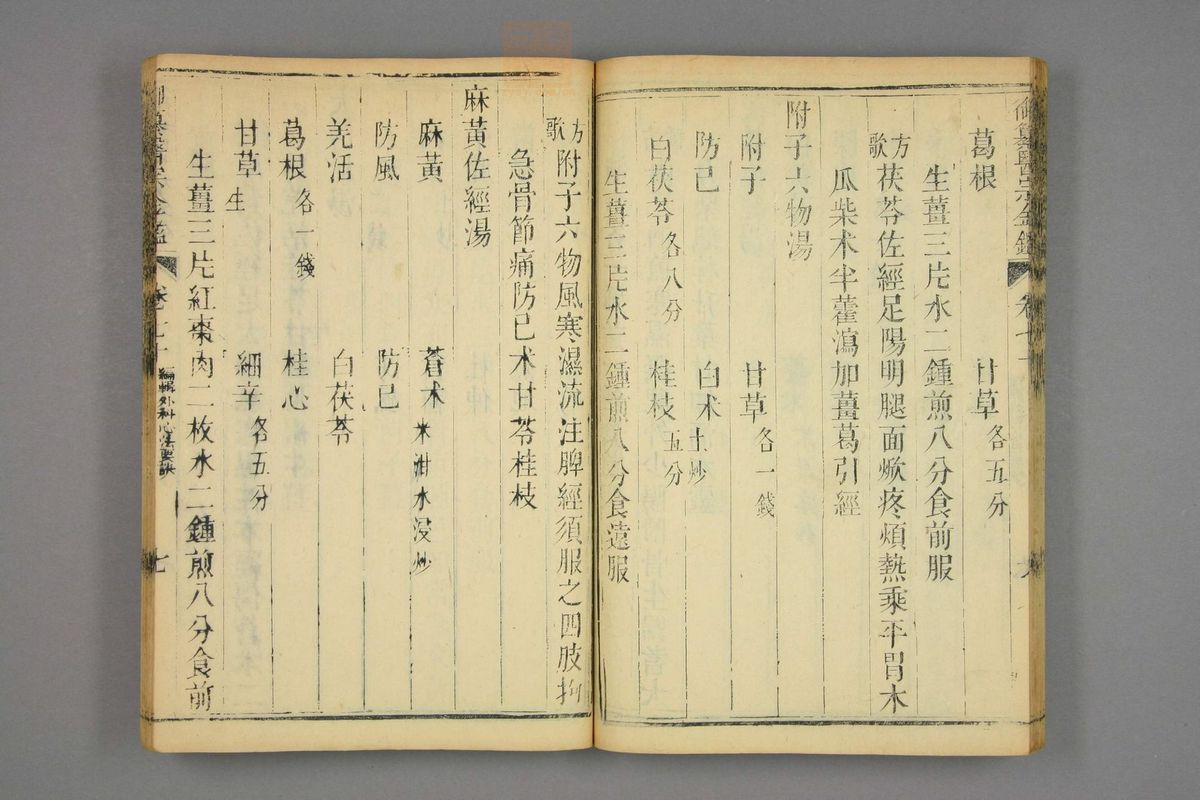 御纂醫宗金鑑 卷七十
葛根 甘草各五分
生薑三片水二鍾煎八分食前服
方歌 茯苓佐經足陽明腿面焮疼煩熱乘平胃木
瓜柴术半藿瀉加薑葛引經
附子六物湯
附子 甘草各一錢
防己 白术土炒
白茯苓各八分 桂枝五分
生薑三片水二鍾煎八分食遠服
方歌 附子六物風寒濕流注脾經須服之四肢拘
急骨節痛防己术甘苓桂枝
麻黃佐經湯
麻黃 蒼术米泔水浸炒
防風 防己
羌活 白茯苓
葛根各一錢 桂心
甘草生 細辛各五分
生薑三片紅棗肉二枚水二鍾煎八分食前
御纂醫宗金鑑 卷七十 編輯外科心法要訣 七